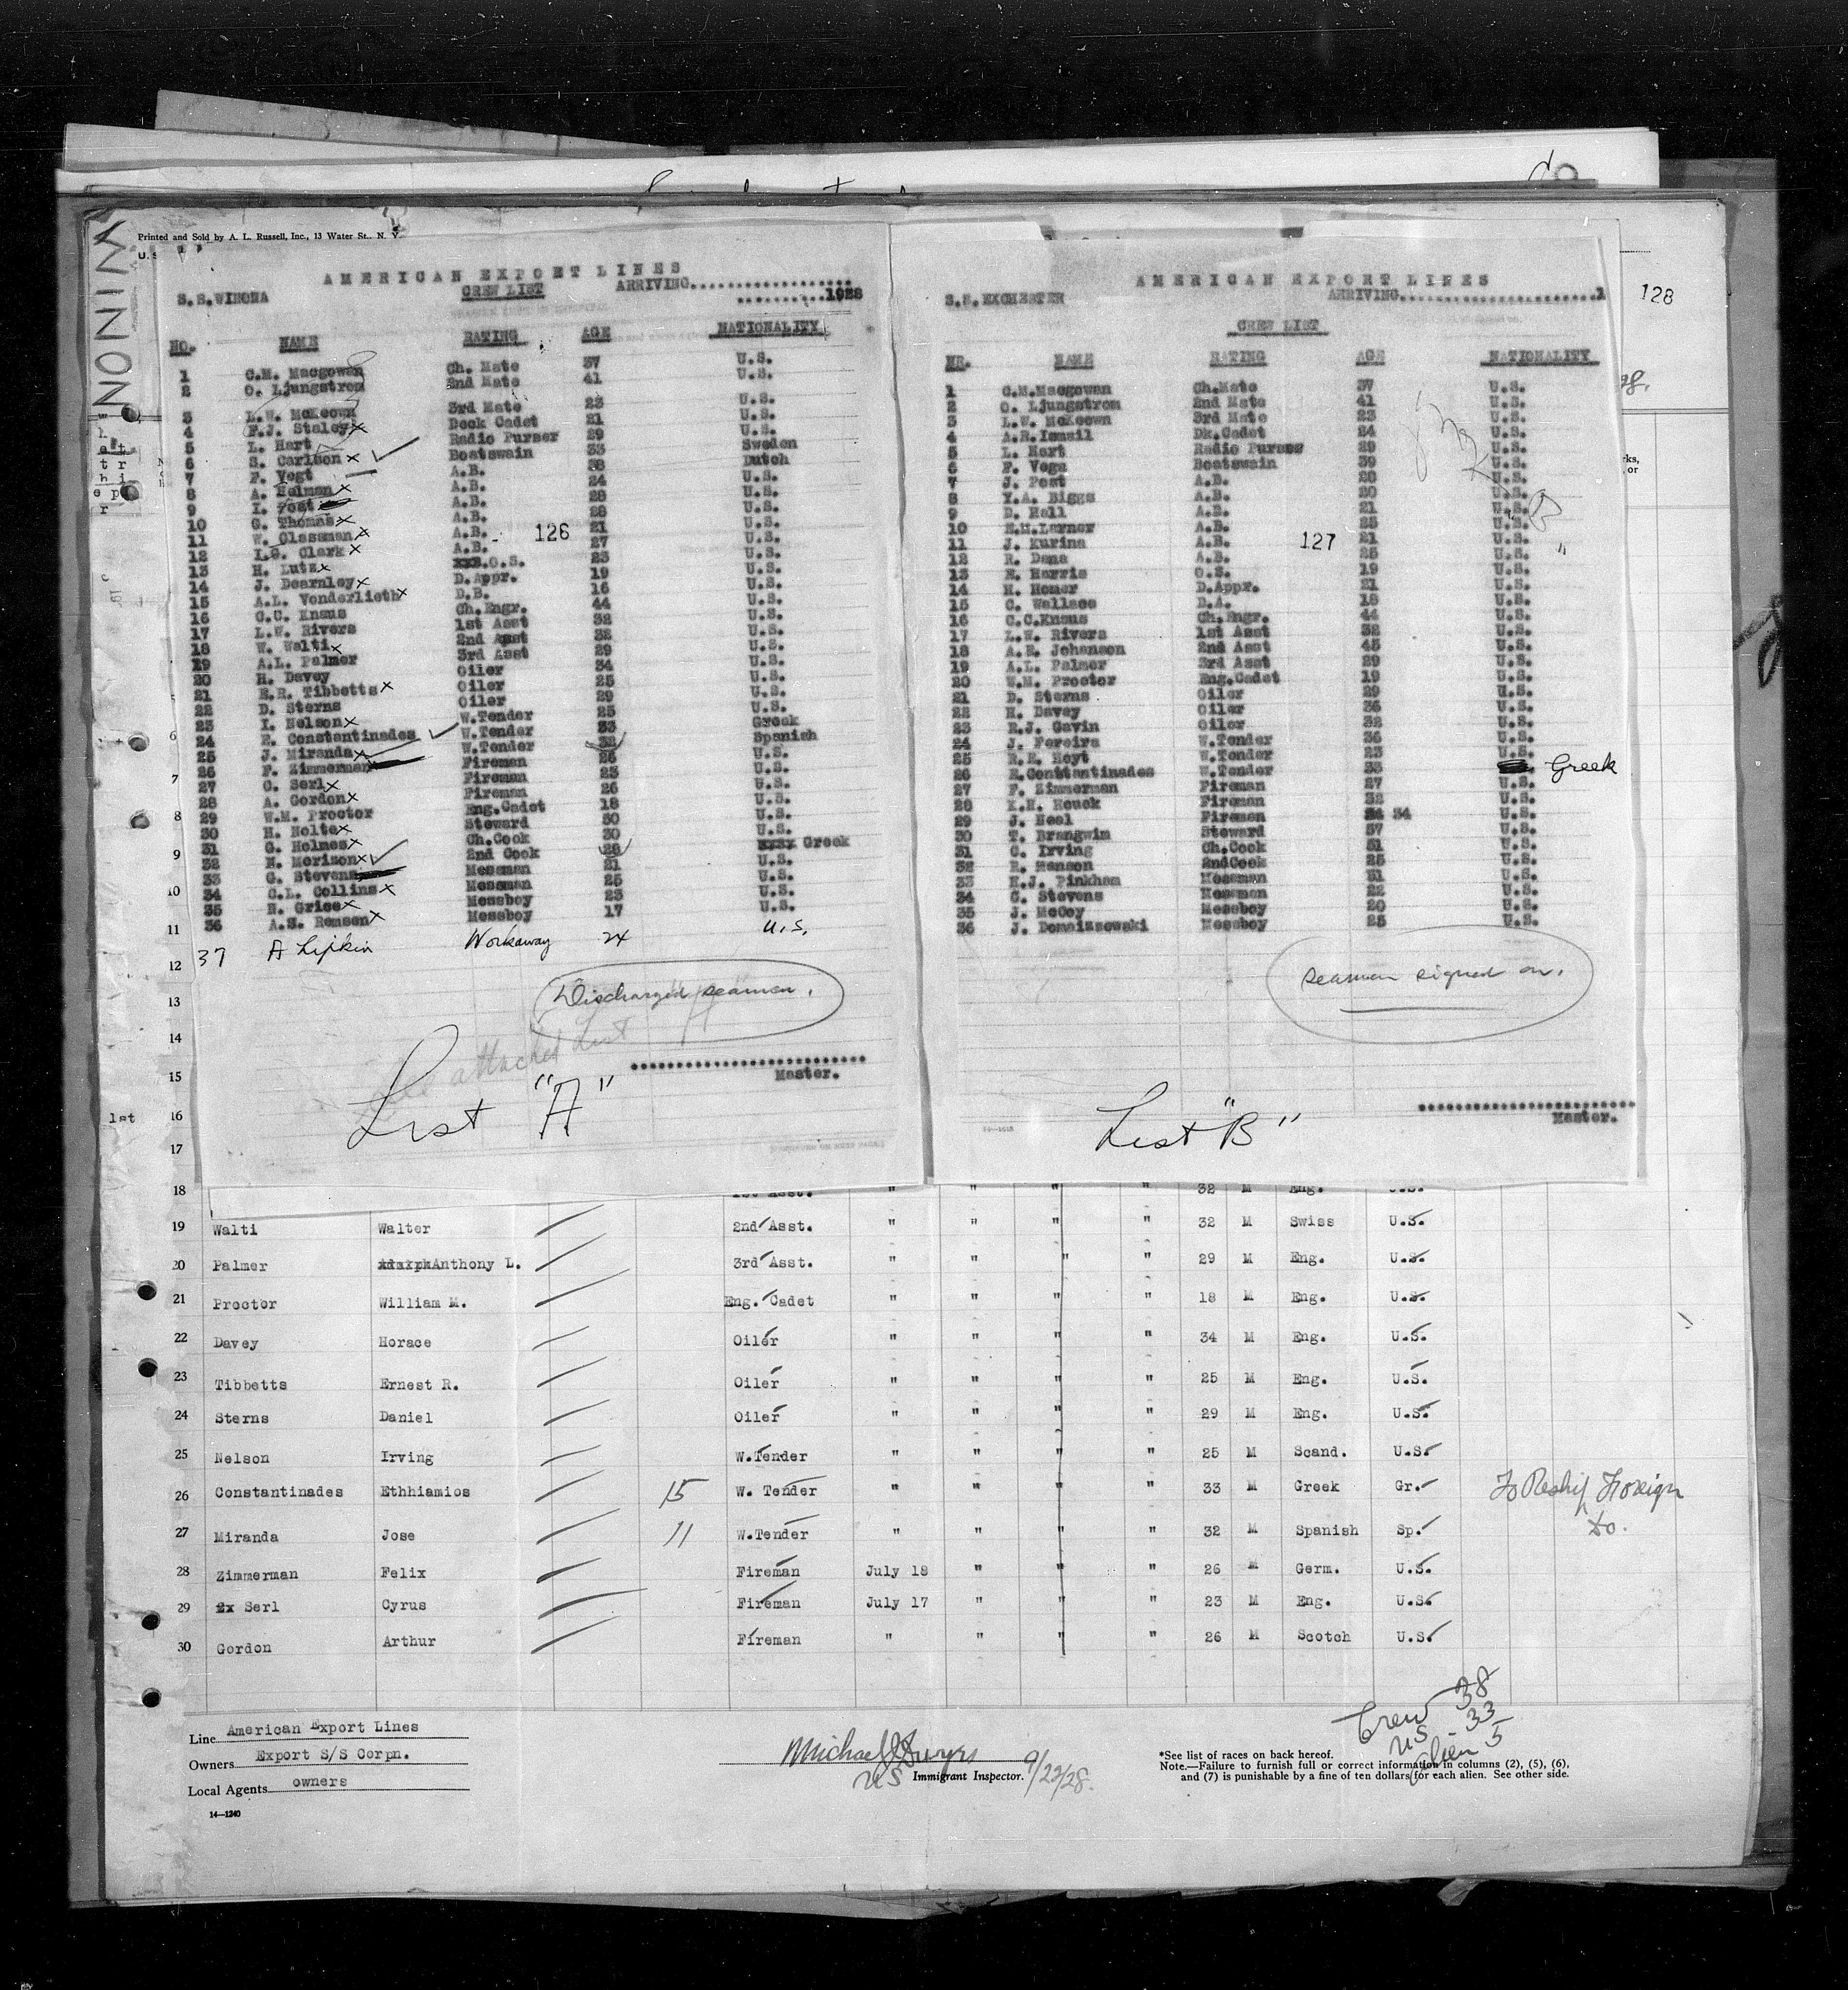 WINONA
Printed and Sold by A. L. Russell, Inc., 13 Water St., N. Y.
U.S
AMERICAN EXPORT LINES
S.S.WINONA CREW LIST ARRIVING..................
..........1928
NO. NAME RATING AGE NATIONALITY
1 C.M. Macgowan Ch. Mate 37 U.S.
2 O. Ljungstrom 2nd Mate 41 U.S.
3 L.W. McKeown 3rd Mate 23 U.S.
4 F.J. Staley x Deck Cadet 21 U.S.
5 L. Hart Radio Purser 29 U.S.
6 S. Carlson x Boatswain 33 Sweden
7 F. Vogt A.B. 38 Dutch
8 A. Helman x A.B. 24 U.S.
9 I. Post A.B. 28 U.S.
10 G. Thomas x A.B. 28 U.S.
11 W. Glassman x A.B. 21 U.S.
12 L.G. Clark x A.B. 27 U.S.
13 H. Lutz x xxB.O.S. 23 U.S.
14 J. Dearnley x D.Appr. 19 U.S.
15 A.L. Vonderlieth x D.B. 16 U.S.
16 C.C. Knaus Ch.Engr. 44 U.S.
17 L.W. Rivers 1st Asst 32 U.S.
18 W. Walti x 2nd Asst 32 U.S.
29 A.L. Palmer 3rd Asst 29 U.S.
20 H. Davey Oiler 34 U.S.
21 E.R. Tibbetts x Oiler 25 U.S.
22 D. Sterns Oiler 29 U.S.
23 I. Nelson x W.Tender 25 U.S.
24 E. Constantinades W.Tender 33 Greek
25 J. Miranda x W.Tender 32 Spanish
26 F. Zimmerman Fireman 26 U.S.
27 C. Serl x Fireman 23 U.S.
28 A. Gordon x Fireman 26 U.S.
29 W.M. Proctor Eng.Cadet 18 U.S.
30 H. Nolte x Steward 50 U.S.
31 G. Holmes x Ch.Cook 30 U.S.
32 N. Morison x 2nd Cook 28 Greek
33 G. Stevens Messman 21 U.S.
34 C.L. Collins x Messman 25 U.S.
35 H. Grice x Messboy 23 U.S.
36 A.S. Remsen x Messboy 17 U.S.
37 A Lipkin Workaway 24 U.S.
126
Discharged seamen.
See attached List
......................
Master.
List "A"
AMERICAN EXPORT LINES
S.S. EXCHESTER ARRIVING......................1
CREW LIST
NR. NAME RATING AGE NATIONALITY
1 C.M.Macgowan Ch.Mate 37 U.S.
2 O. Ljungstrom 2nd Mate 41 U.S.
3 L.W. McKeown 3rd Mate 23 U.S.
4 A.R.Ismail Dk.Cadet 24 U.S.
5 L. Hart Radio Purser 29 U.S.
6 F. Vega Boatswain 39 U.S.
7 J. Post A.B. 28 U.S.
8 Y.A. Biggs A.B. 20 U.S.
9 D. Hall A.B. 21 U.S.
10 H.M.Larner A.B. 25 U.S.
11 J. Kurina A.B. 21 U.S.
12 R. Dana A.B. 25 U.S.
13 E. Harris O.S. 19 U.S.
14 H. Homer D.Appr. 21 U.S.
15 C. Wallace D.A. 18 U.S.
16 C.C.Knaus Ch.Engr. 44 U.S.
17 L.W. Rivers 1st Asst 32 U.S.
18 A.E. Johanson 2nd Asst 45 U.S.
19 A.L. Palmer 3rd Asst 29 U.S.
20 W.M. Proctor Eng.Cadet 19 U.S.
21 D. Sterns Oiler 29 U.S.
22 H. Davey Oiler 36 U.S.
23 R.J. Gavin Oiler 32 U.S.
24 J. Fereira W.Tender 36 U.S.
25 R.E. Hoyt W.Tender 23 U.S.
26 E.Constantinades W.Tender 33 Greek
27 F. Zimmerman Fireman 27 U.S.
28 K.H. Houck Fireman 32 U.S.
29 J. Neel Fireman 34 U.S.
30 T. Brangwin Steward 57 U.S.
31 C. Irving Ch.Cook 51 U.S.
32 R. Hanson 2ndCook 25 U.S.
33 H.J. Pinkham Messman 31 U.S.
34 G. Stevens Messman 22 U.S.
35 J. McCoy Messboy 20 U.S.
36 J. Domaizzewski Messboy 25 U.S.
127
128
seamen signed on.
......................
Master.
List "B"
6
7
8
9
10
11
12
13
14
15
1st 16
17
18 1st Asst. " " " " 32 M Eng. U.S.
19 Walti Walter 2nd Asst. " " " " 32 M Swiss U.S.
20 Palmer Anthony L. 3rd Asst. " " " " 29 M Eng. U.S.
21 Proctor William M. Eng. Cadet " " " " 18 M Eng. U.S.
22 Davey Horace Oiler " " " " 34 M Eng. U.S.
23 Tibbetts Ernest R. Oiler " " " " 25 M Eng. U.S.
24 Sterns Daniel Oiler " " " " 29 M Eng. U.S.
25 Nelson Irving W.Tender " " " " 25 M Scand. U.S.
26 Constantinades Ethhiamios 15 W. Tender " " " " 33 M Greek Gr. To Reship Foreign
27 Miranda Jose 11 W.Tender " " " " 32 M Spanish Sp. do.
28 Zimmerman Felix Fireman July 18 " " " 26 M Germ. U.S.
29 Ex Serl Cyrus Fireman July 17 " " " 23 M Eng. U.S.
30 Gordon Arthur Fireman " " " " 26 M Scotch U.S.
Crew 38
US - 33
Alien 5
Line American Export Lines
Owners Export S/S Corpn.
Local Agents owners
14—1240
US Immigrant Inspector. 9/22/28.
*See list of races on back hereof.
Note.—Failure to furnish full or correct information in columns (2), (5), (6),
and (7) is punishable by a fine of ten dollars for each alien. See other side.